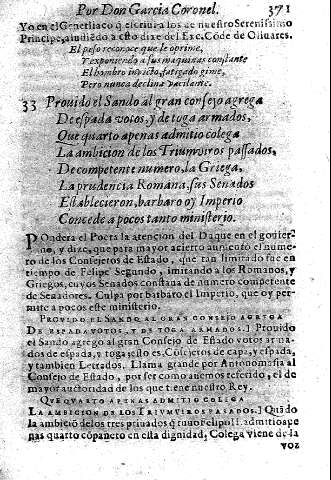 Por Don Garcia Coronel. 371
Yo en el Genetliaco q̃ escriui a los de nuestro Serenissimo
Principe, aludiẽdo a esto dixe del Exc. Cõde de Oliuares.
El peso reconoce que le oprime,
Y exponiendo a sus maquinas constante
El hombro inuicto, fatigado gime,
Pero nunca declina vacilante.
33 Prouido el Sando al gran consejo agrega
De espada votos, y de toga armados,
Que quarto apenas admitio colega
La ambicion de los Triumviros passados,
De competente numero, la Griega,
La prudencia Romana, sus Senados
Establecieron, barbaro oy Imperio
Concede a pocos tanto ministerio.
POndera el Poeta la atencion del Duque en el gouier-
no, y dize, que para mayor acierto aumentò el nume-
ro de los Consejeros de Estado, que tan limitado fue en
tiempo de Felipe Segundo, imitando a los Romanos, y
Griegos, cuyos Senados constauã de numero competente
de Senadores. Culpa por barbaro el Imperio, que oy per-
mite a pocos este ministerio.
PROVIDO EL SANDO AL GRAN CONSEJO AGREGA
DE ESPADA VOTOS, Y DE TOGA ARMADOS.] Prouido
el Sando agrego al gran Consejo de Estado votos arma-
dos de espada, y toga, esto es, Cõsejeros de capa, y espada,
y tambien Letrados. Llama grande por Antonomasia al
Consejo de Estado, por ser como auemos referido, el de
mayor autoridad de los que tiene nuestro Rey.
QVE QVARTO APENAS ADMITIO COLEGA
LA AMBICION DE LOS TRIVMVIROS PASADOS.] Quãdo
la ambiciõ de los tres priuados q̃ tuuo Felipo II. admitio ape
nas quarto cõpañero en esta dignidad, Colega viene de la
voz